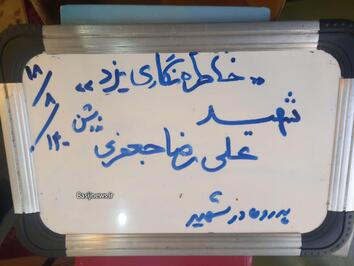 «خاطره نگاری یزد»
شهید
علی رضا جعفری
پدر و مادر شهید
۱۴۰۰/۸/۱۸
Basijnews.ir